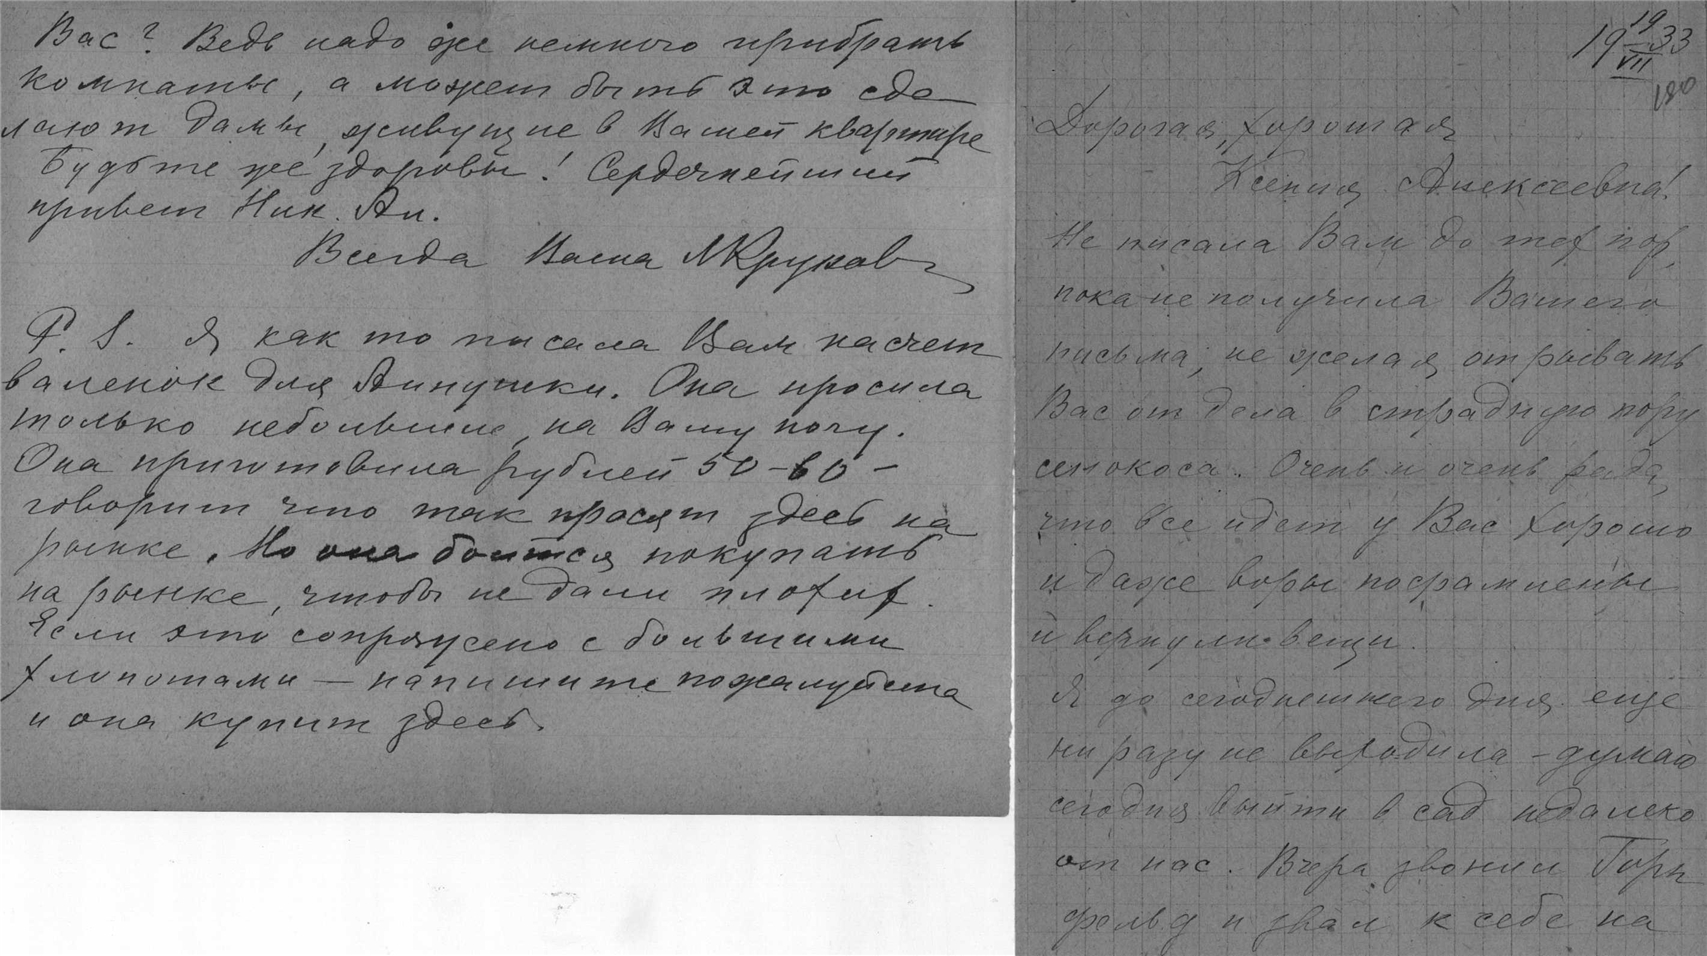 Вас? Ведь надо же немного прибрать
комнаты, а может быть это сде
лают дамы, живущие в Вашей квартире
Будьте же здоровы! Сердечнейший
привет Ник. Ал.
Всегда Ваша
P. S. Я как то писала Вам насчет
валенок для Аннушки. Она просила
только небольшие, на Вашу ногу.
Она приготовила рублей 50-60 -
говорит что так просят здесь на
рынке. Но она боится покупать
на рынке, чтобы не дали плохих.
Если это сопряжено с большими
хлопотами — напишите пожалуйста
и она купит здесь.
19 19/VII 33
180
Дорогая, хорошая
Ксения Алексеевна!
Не писала Вам до тех пор,
пока не получила Вашего
письма, не желая отрывать
Вас от дела в страдную пору
сенокоса. Очень и очень рада,
что все идет у Вас хорошо
и даже воры посрамлены
и вернули вещи.
Я до сегоднешнего дня еще
ни разу не выходила - думаю
сегодня выйти в сад недалеко
от нас. Вчера звонил Горн
фельд и звал к себе на